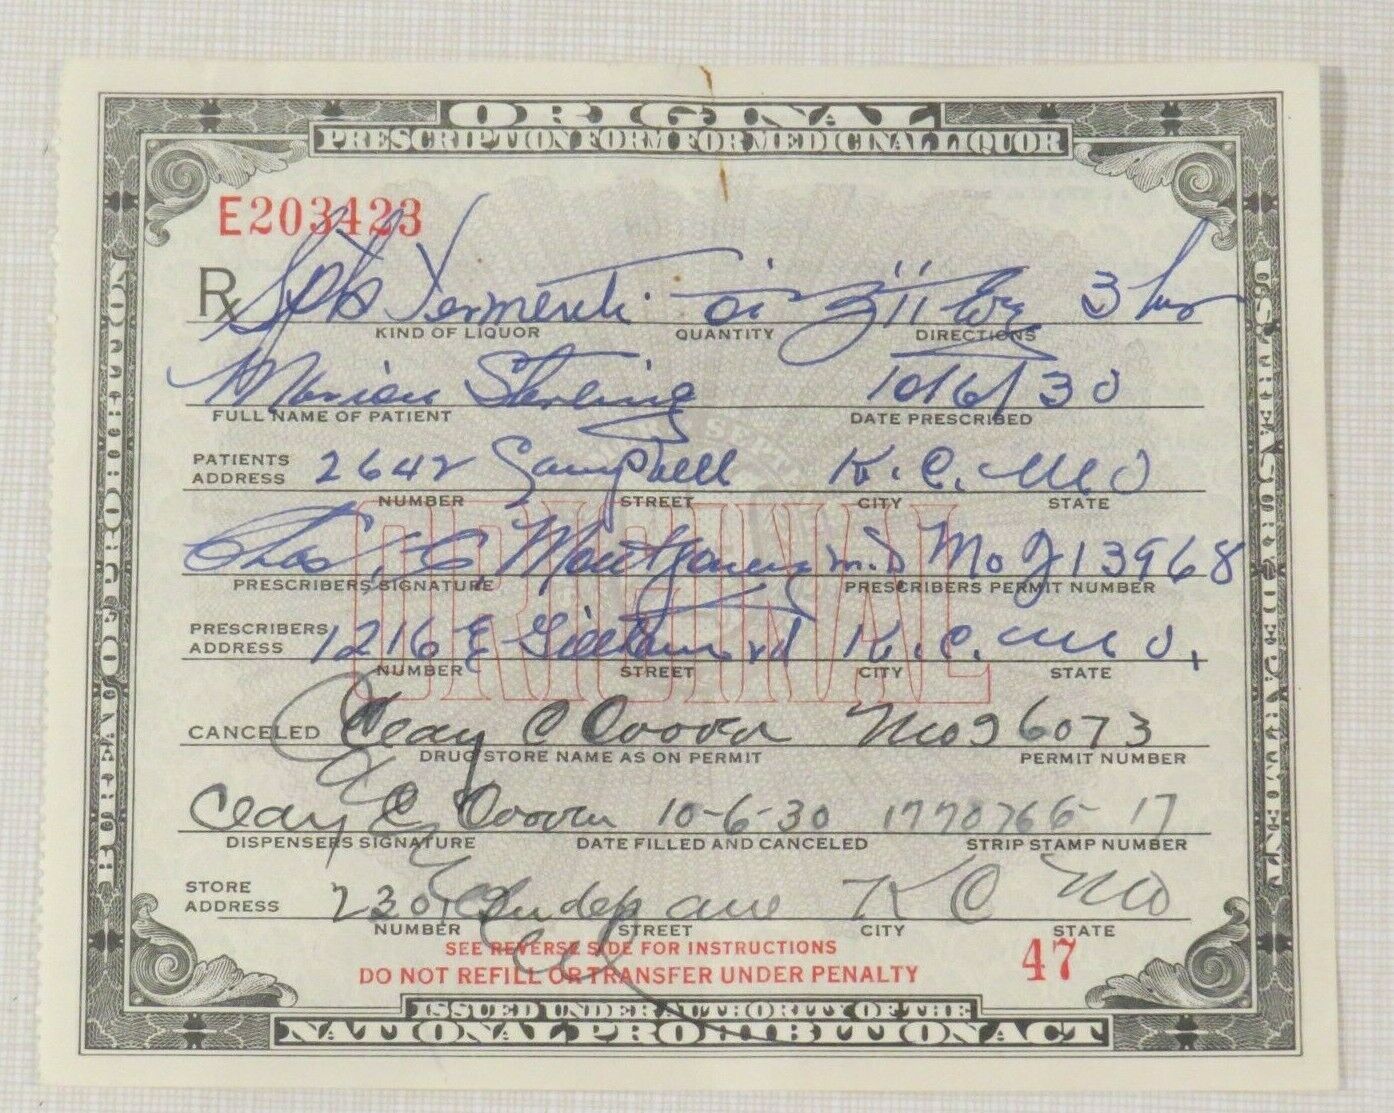 ORIGINAL
PRESCRIPTION FORM FOR MEDICINAL LIQUOR
E203423
Rx Sp Fermenti 3 hrs
KIND OF LIQUOR QUANTITY DIRECTIONS
Marion Sterling 10/6/30
FULL NAME OF PATIENT DATE PRESCRIBED
PATIENTS ADDRESS 2642 Campbell K.C. Mo
NUMBER STREET CITY STATE
ORIGINAL
Chas. C Montgomery m.D Mo J 13968
PRESCRIBERS SIGNATURE PRESCRIBERS PERMIT NUMBER
PRESCRIBERS ADDRESS 1216 E K.C. Mo.
NUMBER STREET CITY STATE
CANCELED Clay C Coover Mo 96073
DRUG STORE NAME AS ON PERMIT PERMIT NUMBER
Clay C Coover 10-6-30 17
DISPENSERS SIGNATURE DATE FILLED AND CANCELED STRIP STAMP NUMBER
STORE ADDRESS 2301 Indep ave K C Mo
NUMBER STREET CITY STATE
SEE REVERSE SIDE FOR INSTRUCTIONS
DO NOT REFILL OR TRANSFER UNDER PENALTY
47
ISSUED UNDER AUTHORITY OF THE
NATIONAL PROHIBITION ACT
BUREAU OF PROHIBITION
U.S. TREASURY DEPARTMENT